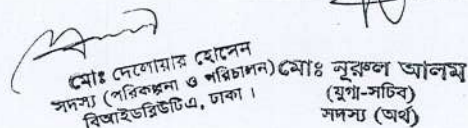 মোঃ দেলোয়ার হোসেন
সদস্য (পরিকল্পনা ও পরিচালন)
বিআইডব্লিউটিএ, ঢাকা।
মোঃ নূরুল আলম
(যুগ্ম-সচিব)
সদস্য (অর্থ)